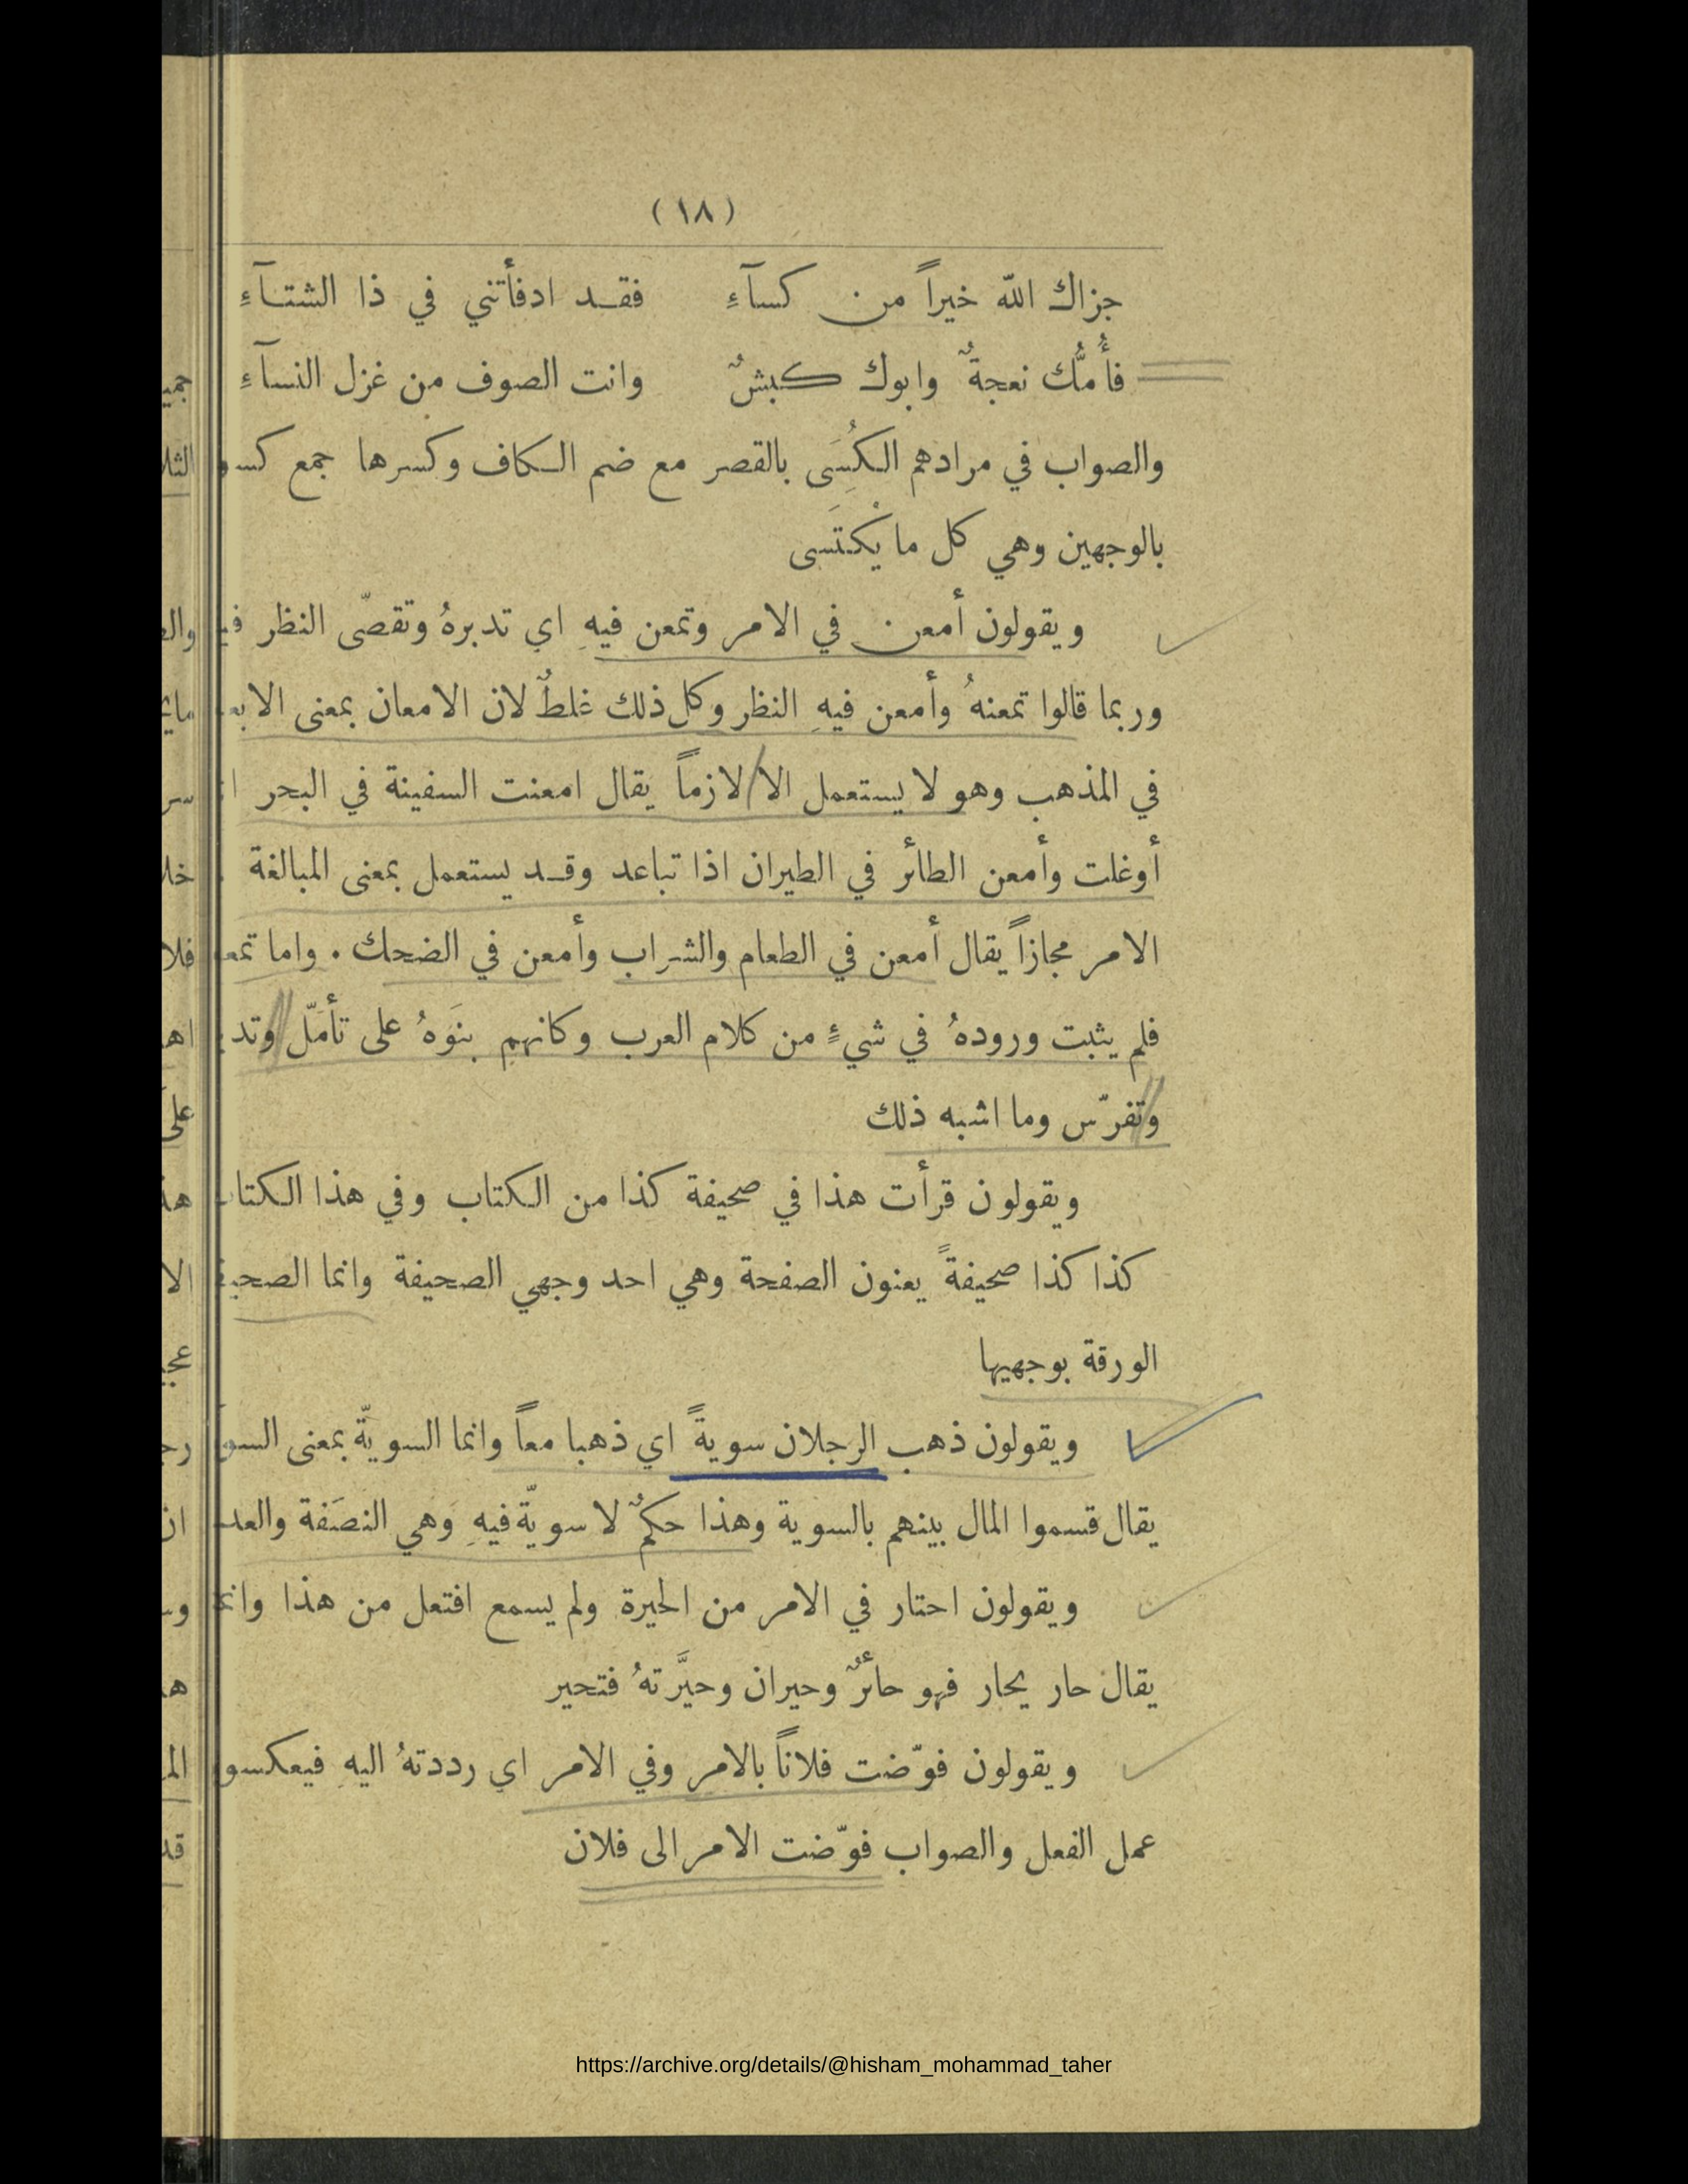 (١٨)
جزاك الله خيراً من كسآءِ فقد ادفأتني في ذا الشتآءِ
فأُمُّك نعجةٌ وابوك كبشٌ وانت الصوف من غزل النسآءِ
والصواب في مرادهم الكُسَِى بالقصر مع ضم الكاف وكسرها جمع
بالوجهين وهي كل ما يُكْتَسى
ويقولون أمعن في الامر وتمعن فيهِ اي تدبرهُ وتقصّى النظر
وربما قالوا تمعنهُ وأمعن فيهِ النظر وكل ذلك غلطٌ لان الامعان بمعنى
في المذهب وهو لا يستعمل الا لازماً يقال امعنت السفينة في البحر
أوغلت وأمعن الطائر في الطيران اذا تباعد وقد يستعمل بمعنى المبالغة
الامر مجازاً يقال أمعن في الطعام والشراب وأمعن في الضحك . واما
فلم يثبت ورودهُ في شيءٍ من كلام العرب وكانهم بنَوهُ على تأمَّل
وتفرّس وما اشبه ذلك
ويقولون قرأت هذا في صحيفة كذا من الكتاب وفي هذا
كذا كذا صحيفةً يعنون الصفحة وهي احد وجهي الصحيفة وانما
الورقة بوجهيها
ويقولون ذهب الرجلان سويةً اي ذهبا معاً وانما السويّة بمعنى
يقال قسموا المال بينهم بالسوية وهذا حكمٌ لا سويّة فيهِ وهي النصَفة
ويقولون احتار في الامر من الحيرة ولم يسمع افتعل من هذا
يقال حار يحار فهو حائرٌ وحيران وحيَّرتهُ فتحير
ويقولون فوّضت فلاناً بالامر وفي الامر اي رددتهُ اليهِ
عمل الفعل والصواب فوّضت الامر الى فلان
https://archive.org/details/@hisham_mohammad_taher